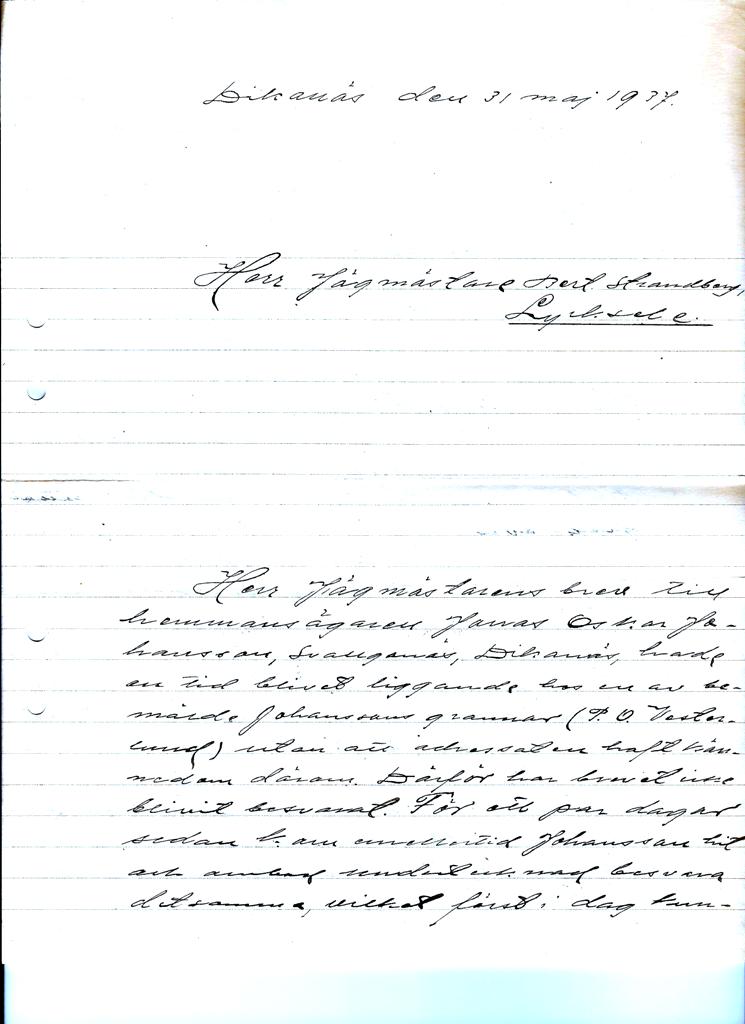 Dikanäs den 31 maj 1937.
Herr Jägmästare Bert. Strandberg,
Lycksele.
Herr Jägmästarens brev till
hemmansägaren Jonas Oskar Jo-
hansson, Svanganäs, Dikanäs, hade
en tid blivet liggande hos en av be-
mälde Johanssons grannar (P. O. Vester-
lund) utan att adressaten haft kän-
nedom därom. Därför har brevet icke
blivit besvarat. För ett par dagar
sedan kom emellertid Johansson hit
och ombad undertecknad besvara
detsamma, vilket först i dag kun-